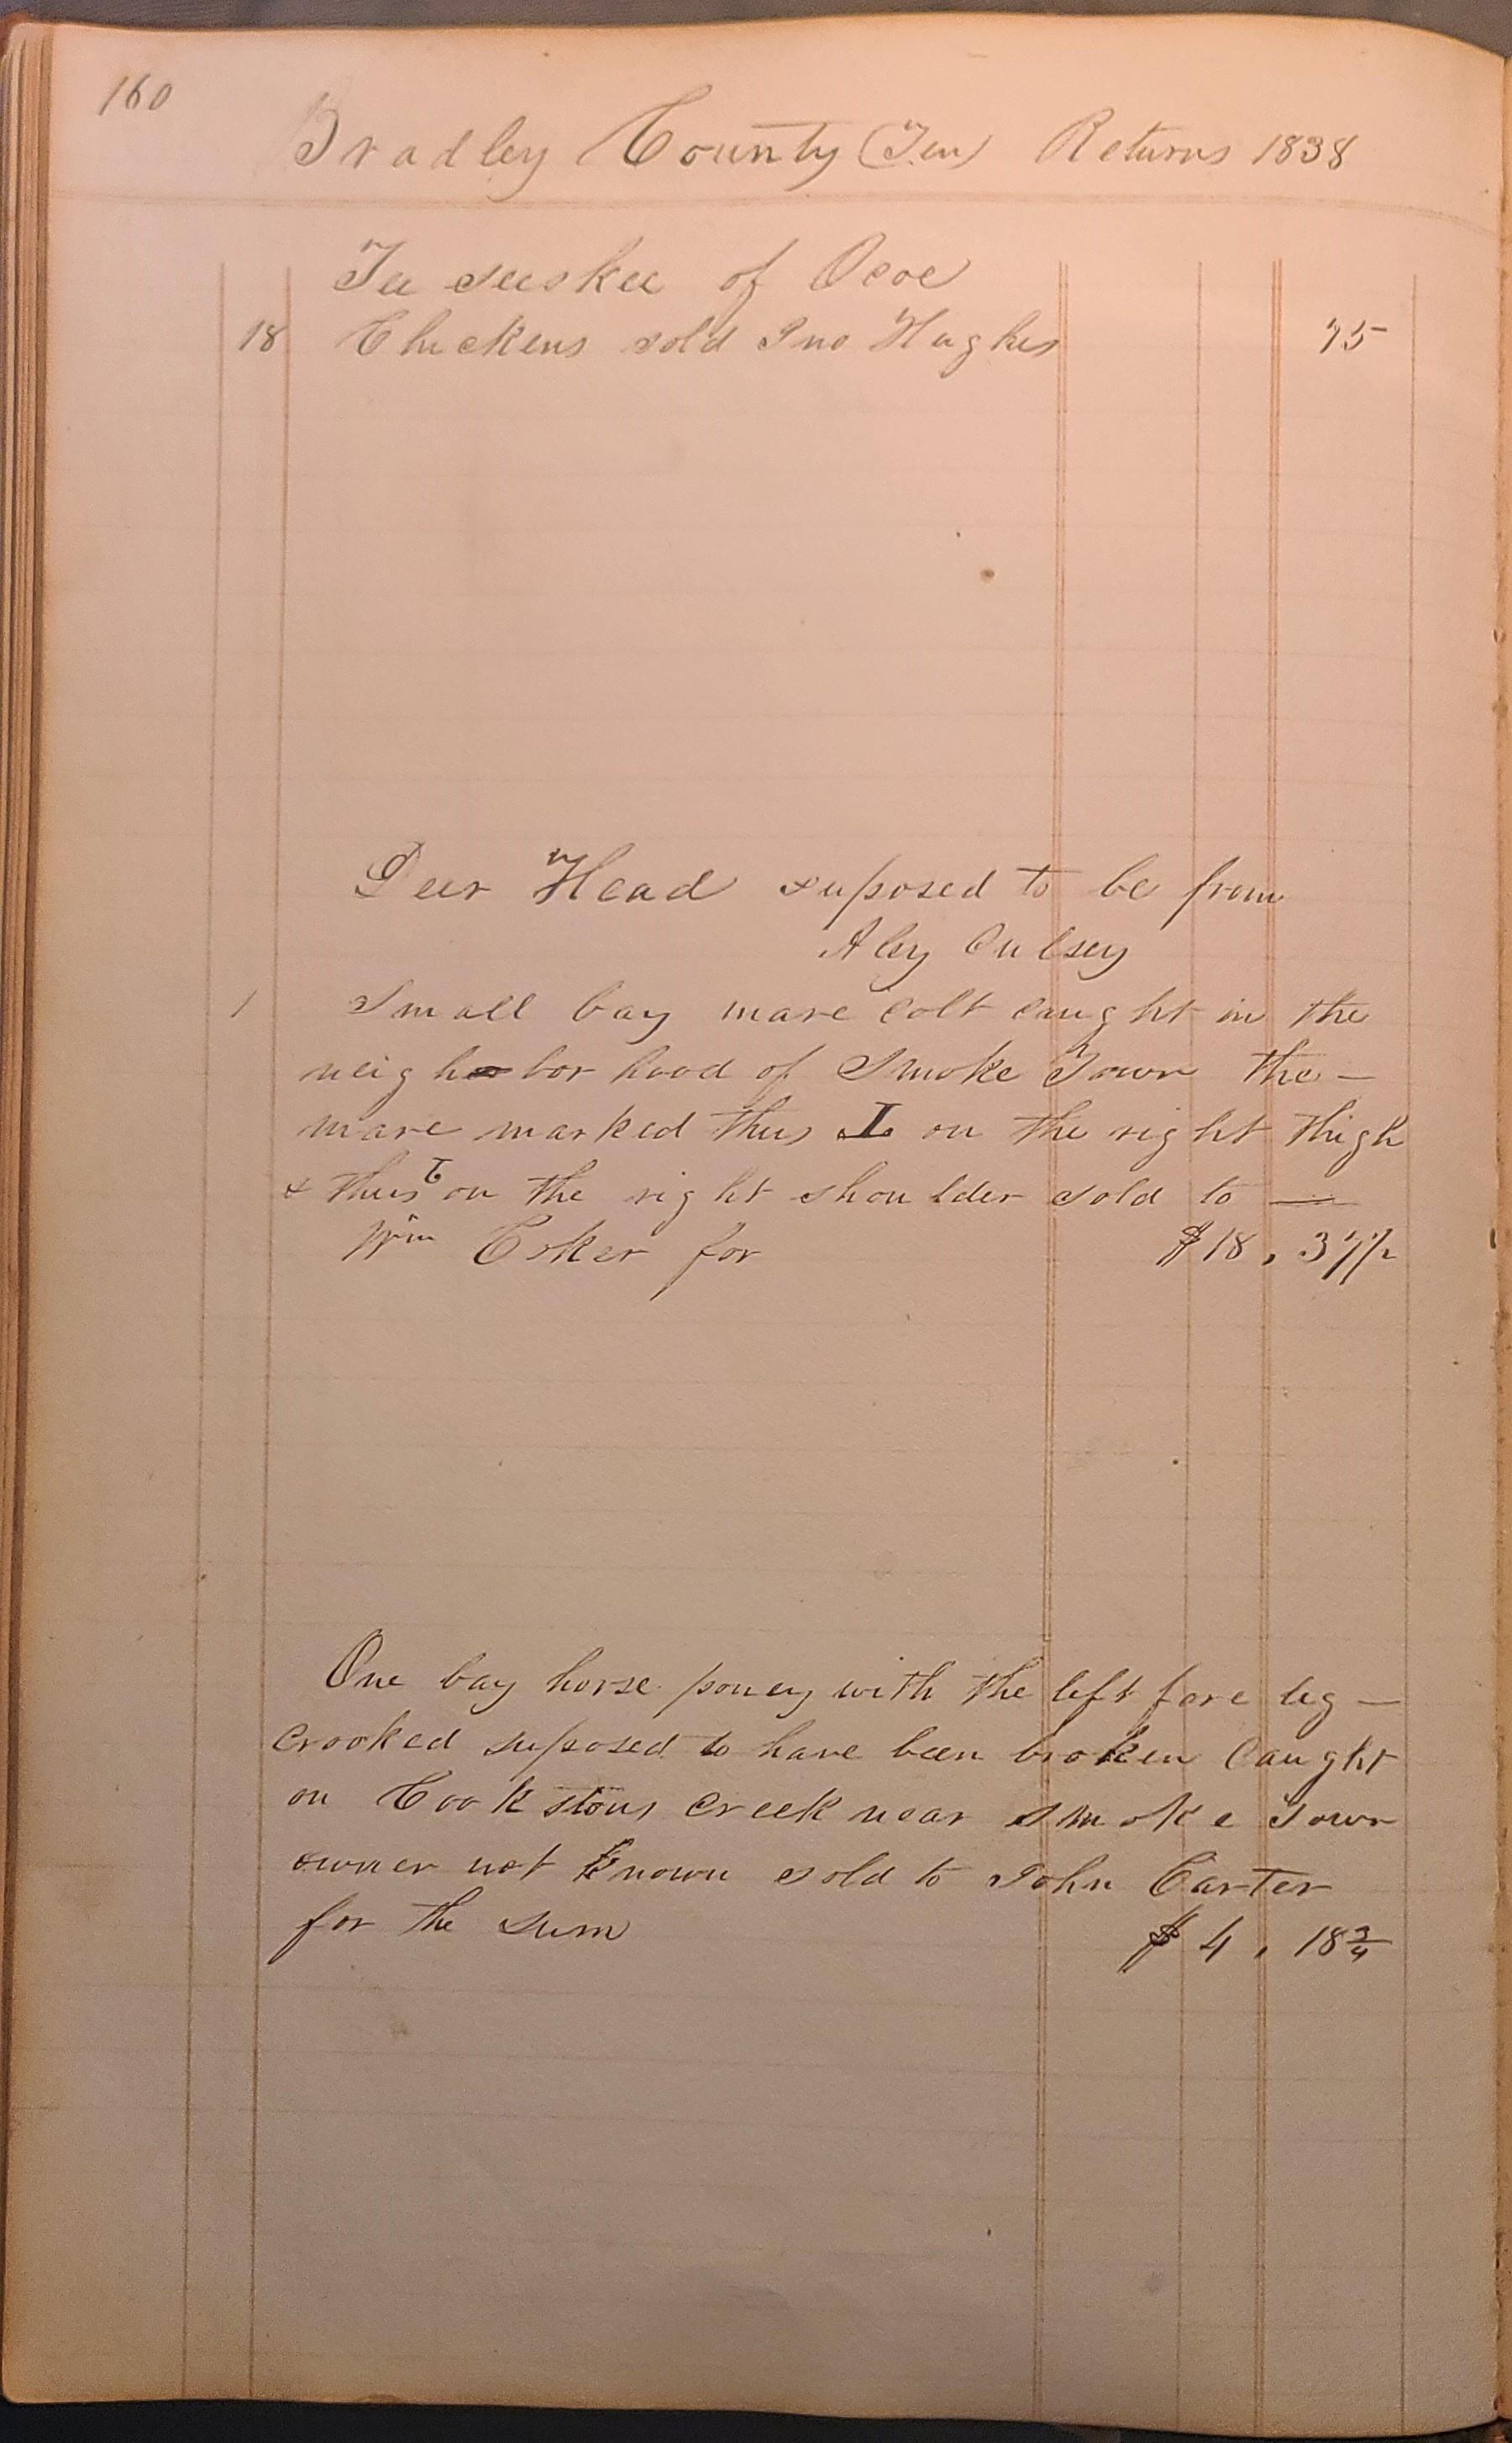 160
Bradley County (Ten) Returns 1838
Te suskee of Ocoe
18 Chickens sold Jno Hughes 75
Deer Head suposed to be from
Aley Culsey
1 Small bay mare colt caught in the
neighborhood of Smoke Town the —
mare marked thus I on the right thigh
& thus T on the right shoulder sold to —
Wm Coker for $18, 37½
One bay horse poney with the left fore leg —
crooked suposed to have been broken caught
on Cookstons Creek near Smoke Town
owner not known sold to John Carter
for the sum $4, 18¾